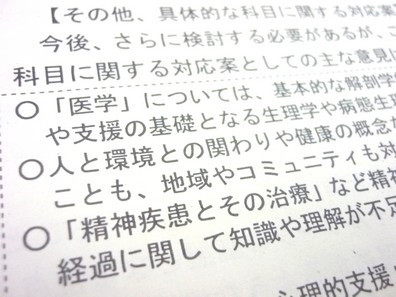 【その他、具体的な科目に関する対応案
今後、さらに検討する必要があるが、こ
科目に関する対応案としての主な意見に
○「医学」については、基本的な解剖学
や支援の基礎となる生理学や病態生理
○人と環境との関わりや健康の概念
ことも、地域やコミュニティも対
○「精神疾患とその治療」など精神
経過に関して知識や理解が不足
心理的支援